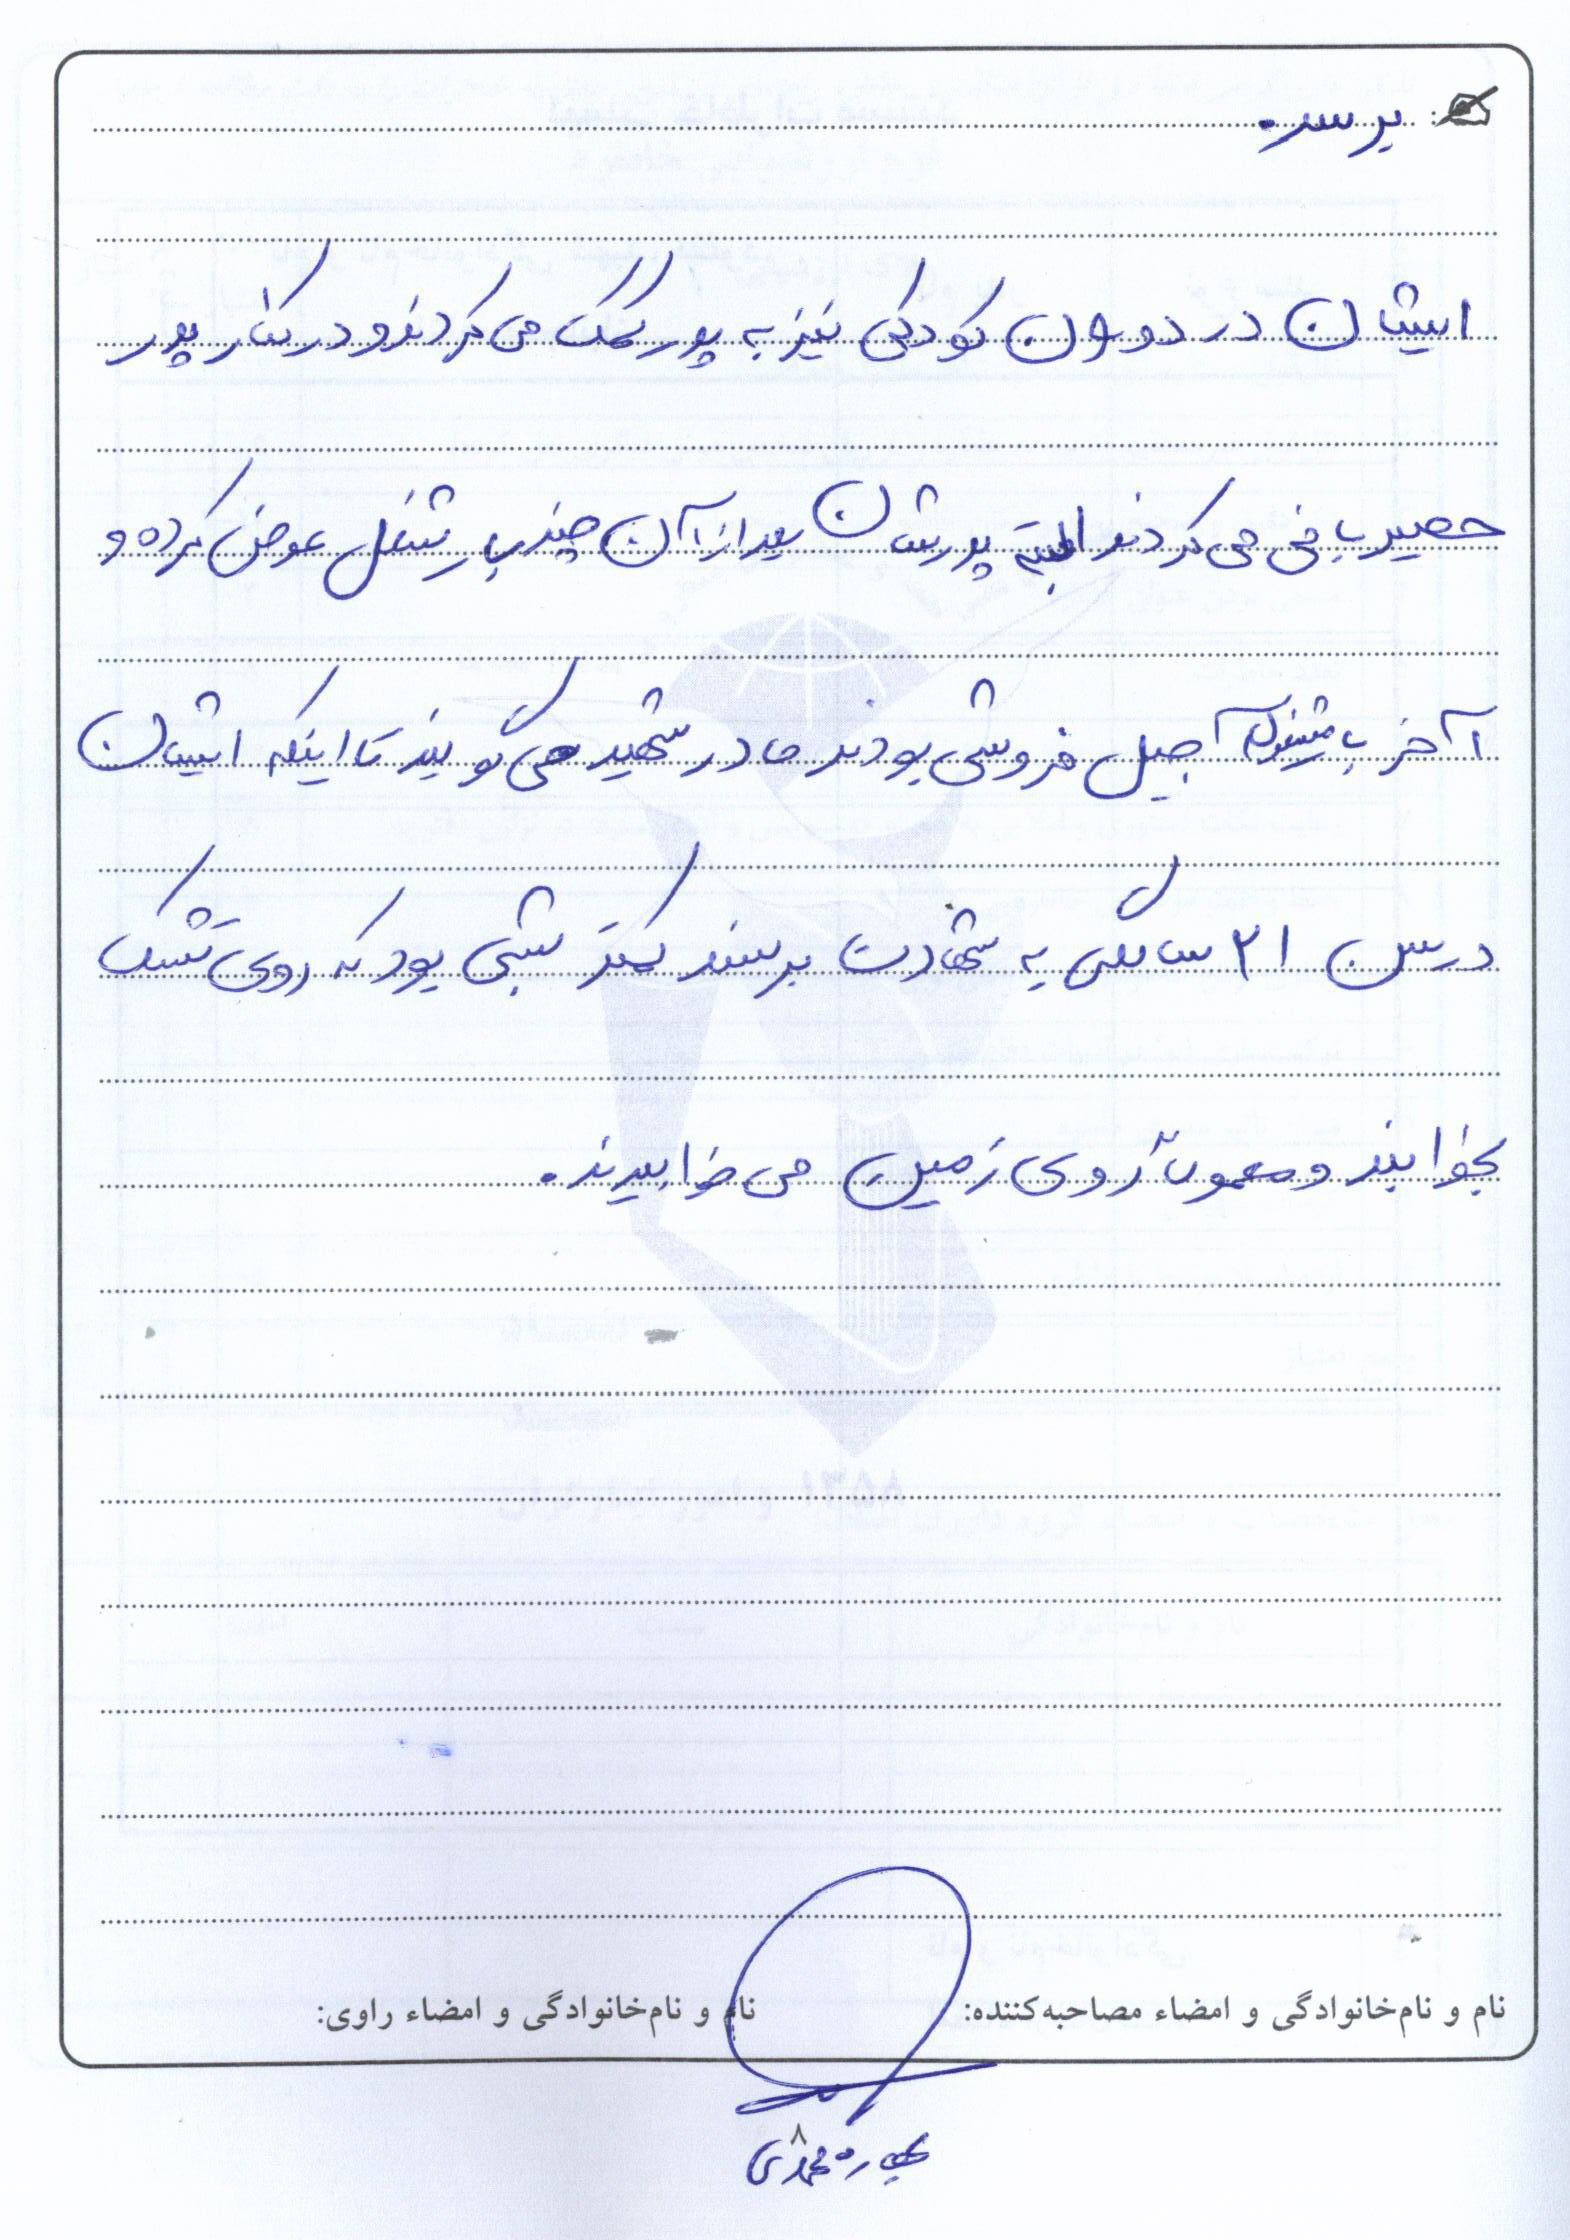 برسد.
ایشان در دوران کودکی نیز به پدر کمک می کردند و در کنار پدر
حصیر بافی می کردند البته پدرشان بعد از آن چند بار شغل عوض کرده و
آخر با شغل آجیل فروشی بودند مادر شهید می گویند تا اینکه ایشان
در سن ۲۱ سالگی به شهادت برسند کمتر شبی بود که روی تشک
بخوابند و معمولاً روی زمین می خوابیدند.
نام و نام‌خانوادگی و امضاء مصاحبه‌کننده: نام و نام‌خانوادگی و امضاء راوی:
۸
محمدی